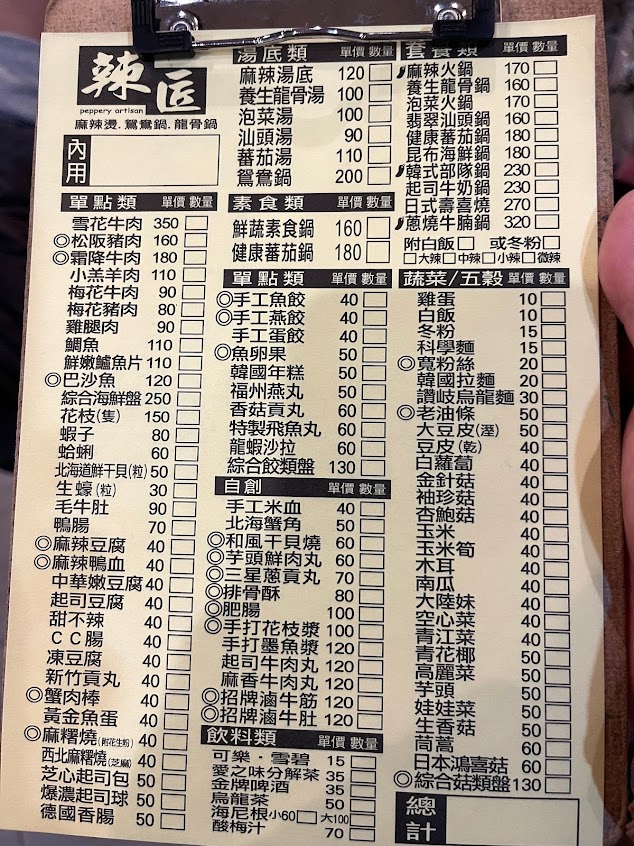 辣匠
peppery artisan
麻辣燙.鴛鴦鍋.龍骨鍋
內用
單點類 單價 數量
雪花牛肉 350
◎松阪豬肉 160
◎霜降牛肉 180
小羔羊肉 110
梅花牛肉 90
梅花豬肉 80
雞腿肉 90
鯛魚 110
鮮嫩鱸魚片 110
◎巴沙魚 120
綜合海鮮盤 250
花枝(隻) 150
蝦子 80
蛤蜊 60
北海道鮮干貝(粒) 50
生蠔(粒) 30
毛牛肚 90
鴨腸 70
◎麻辣豆腐 40
◎麻辣鴨血 40
中華嫩豆腐 40
起司豆腐 40
甜不辣 40
CC腸 40
凍豆腐 40
新竹貢丸 40
◎蟹肉棒 40
黃金魚蛋 40
◎麻糬燒(附花生粉) 40
西北麻糬燒(芝麻) 40
芝心起司包 50
爆濃起司球 50
德國香腸 50
湯底類 單價 數量
麻辣湯底 120
養生龍骨湯 100
泡菜湯 100
汕頭湯 90
蕃茄湯 110
鴛鴦鍋 200
素食類 單價 數量
鮮蔬素食鍋 160
健康蕃茄鍋 180
單點類 單價 數量
◎手工魚餃 40
◎手工燕餃 40
手工蛋餃 40
◎魚卵果 50
韓國年糕 50
福州燕丸 50
香菇貢丸 60
特製飛魚丸 60
龍蝦沙拉 60
綜合餃類盤 130
自創 單價 數量
手工米血 40
北海蟹角 50
◎和風干貝燒 60
◎芋頭鮮肉丸 60
◎三星蔥貢丸 70
◎排骨酥 80
◎肥腸 100
◎手打花枝漿 100
手打墨魚漿 120
起司牛肉丸 120
麻香牛肉丸 120
◎招牌滷牛筋 120
◎招牌滷牛肚 120
飲料類 單價 數量
可樂.雪碧 15
愛之味分解茶 35
金牌啤酒 35
烏龍茶 50
海尼根 小60 大100
酸梅汁 70
套餐類 單價 數量
麻辣火鍋 170
養生龍骨鍋 160
泡菜火鍋 160
翡翠汕頭鍋 160
健康蕃茄鍋 180
昆布海鮮鍋 180
韓式部隊鍋 230
起司牛奶鍋 230
日式壽喜燒 270
蔥燒牛腩鍋 320
附白飯□ 或冬粉□
□大辣□中辣□小辣□微辣
蔬菜/五穀 單價 數量
雞蛋 10
白飯 10
冬粉 15
科學麵 15
◎寬粉絲 20
韓國拉麵 20
讚岐烏龍麵 30
◎老油條 50
大豆皮(溼) 50
豆皮(乾) 40
白蘿蔔 40
金針菇 40
袖珍菇 40
杏鮑菇 40
玉米 40
玉米筍 40
木耳 40
南瓜 40
大陸妹 40
空心菜 40
青江菜 40
青花椰 50
高麗菜 50
芋頭 50
娃娃菜 50
生香菇 50
茼萵 60
日本鴻喜菇 60
◎綜合菇類盤 130
總計